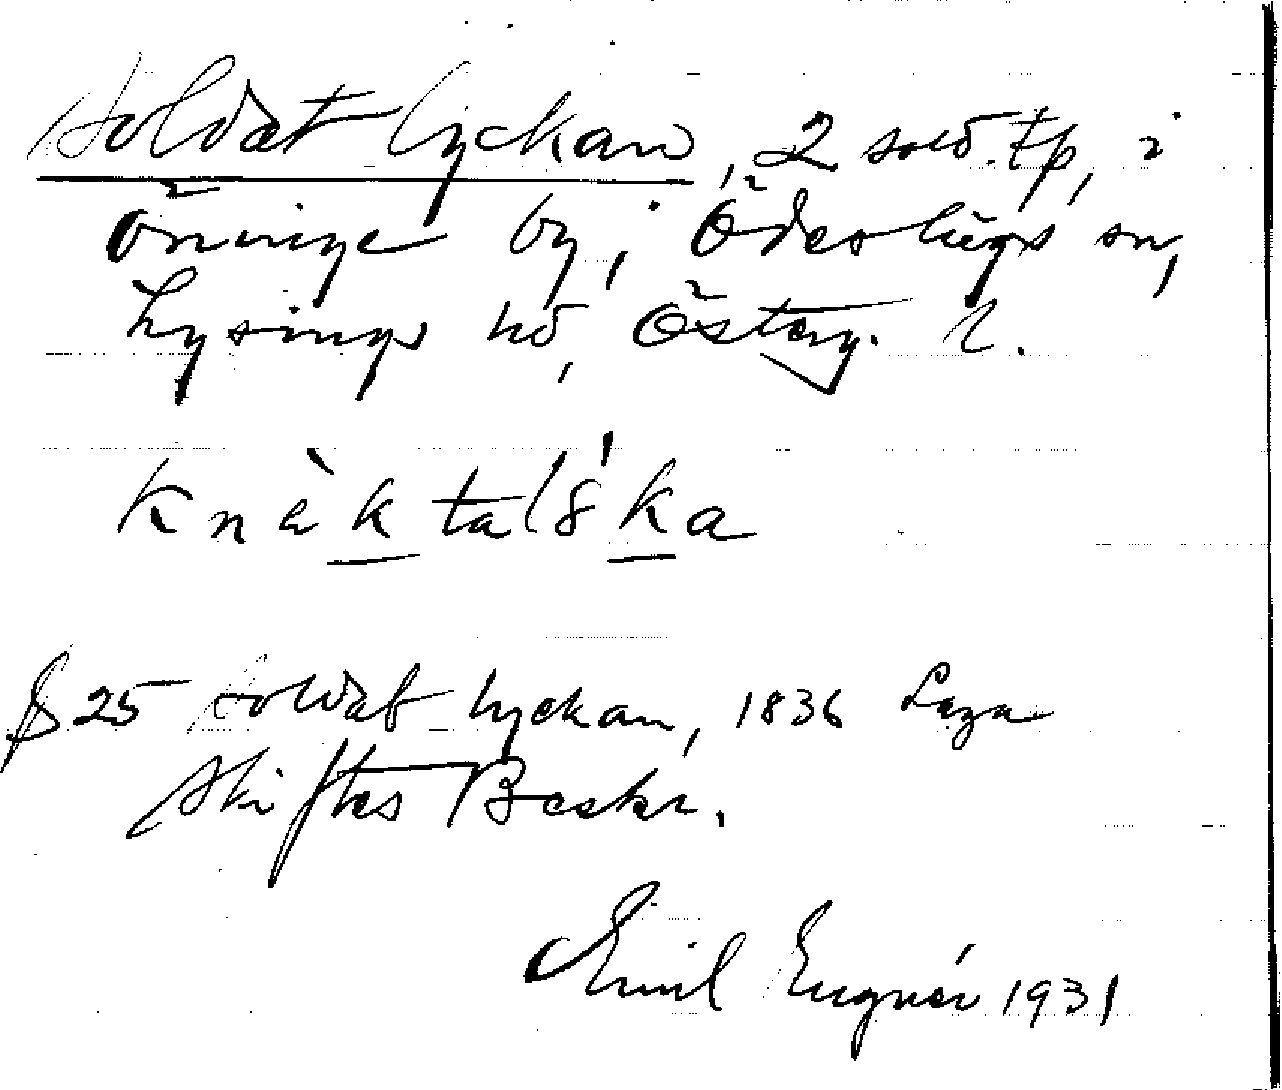 Soldat lyckan, 2 sold. tp, i
Önninge by, Ödeshögs sn,
Lysings hd, Österg. l.
knàktalska
§ 25 Soldat lyckan, 1836 Laga
Skiftes Beskr.
Emil 1931